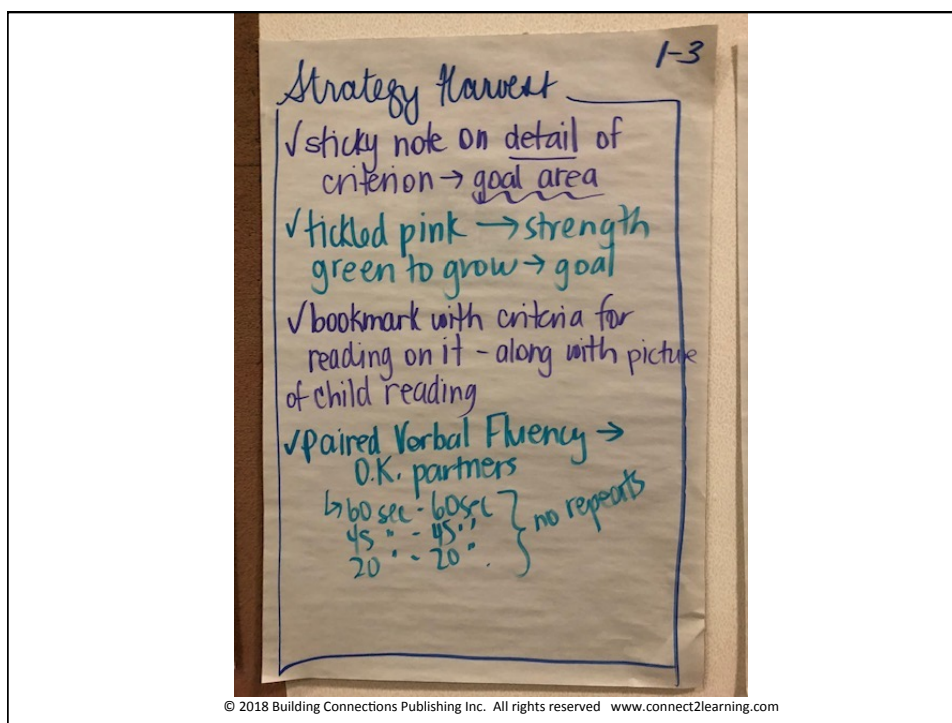 1-3
Strategy Harvest
✓sticky note on detail of
criterion → goal area
✓tickled pink → strength
green to grow → goal
✓bookmark with criteria for
reading on it - along with picture
of child reading
✓Paired Verbal Fluency →
O.K. partners
↳60 sec - 60sec
45 " - 45 "
20 " - 20 "
no repeats
© 2018 Building Connections Publishing Inc. All rights reserved www.connect2learning.com